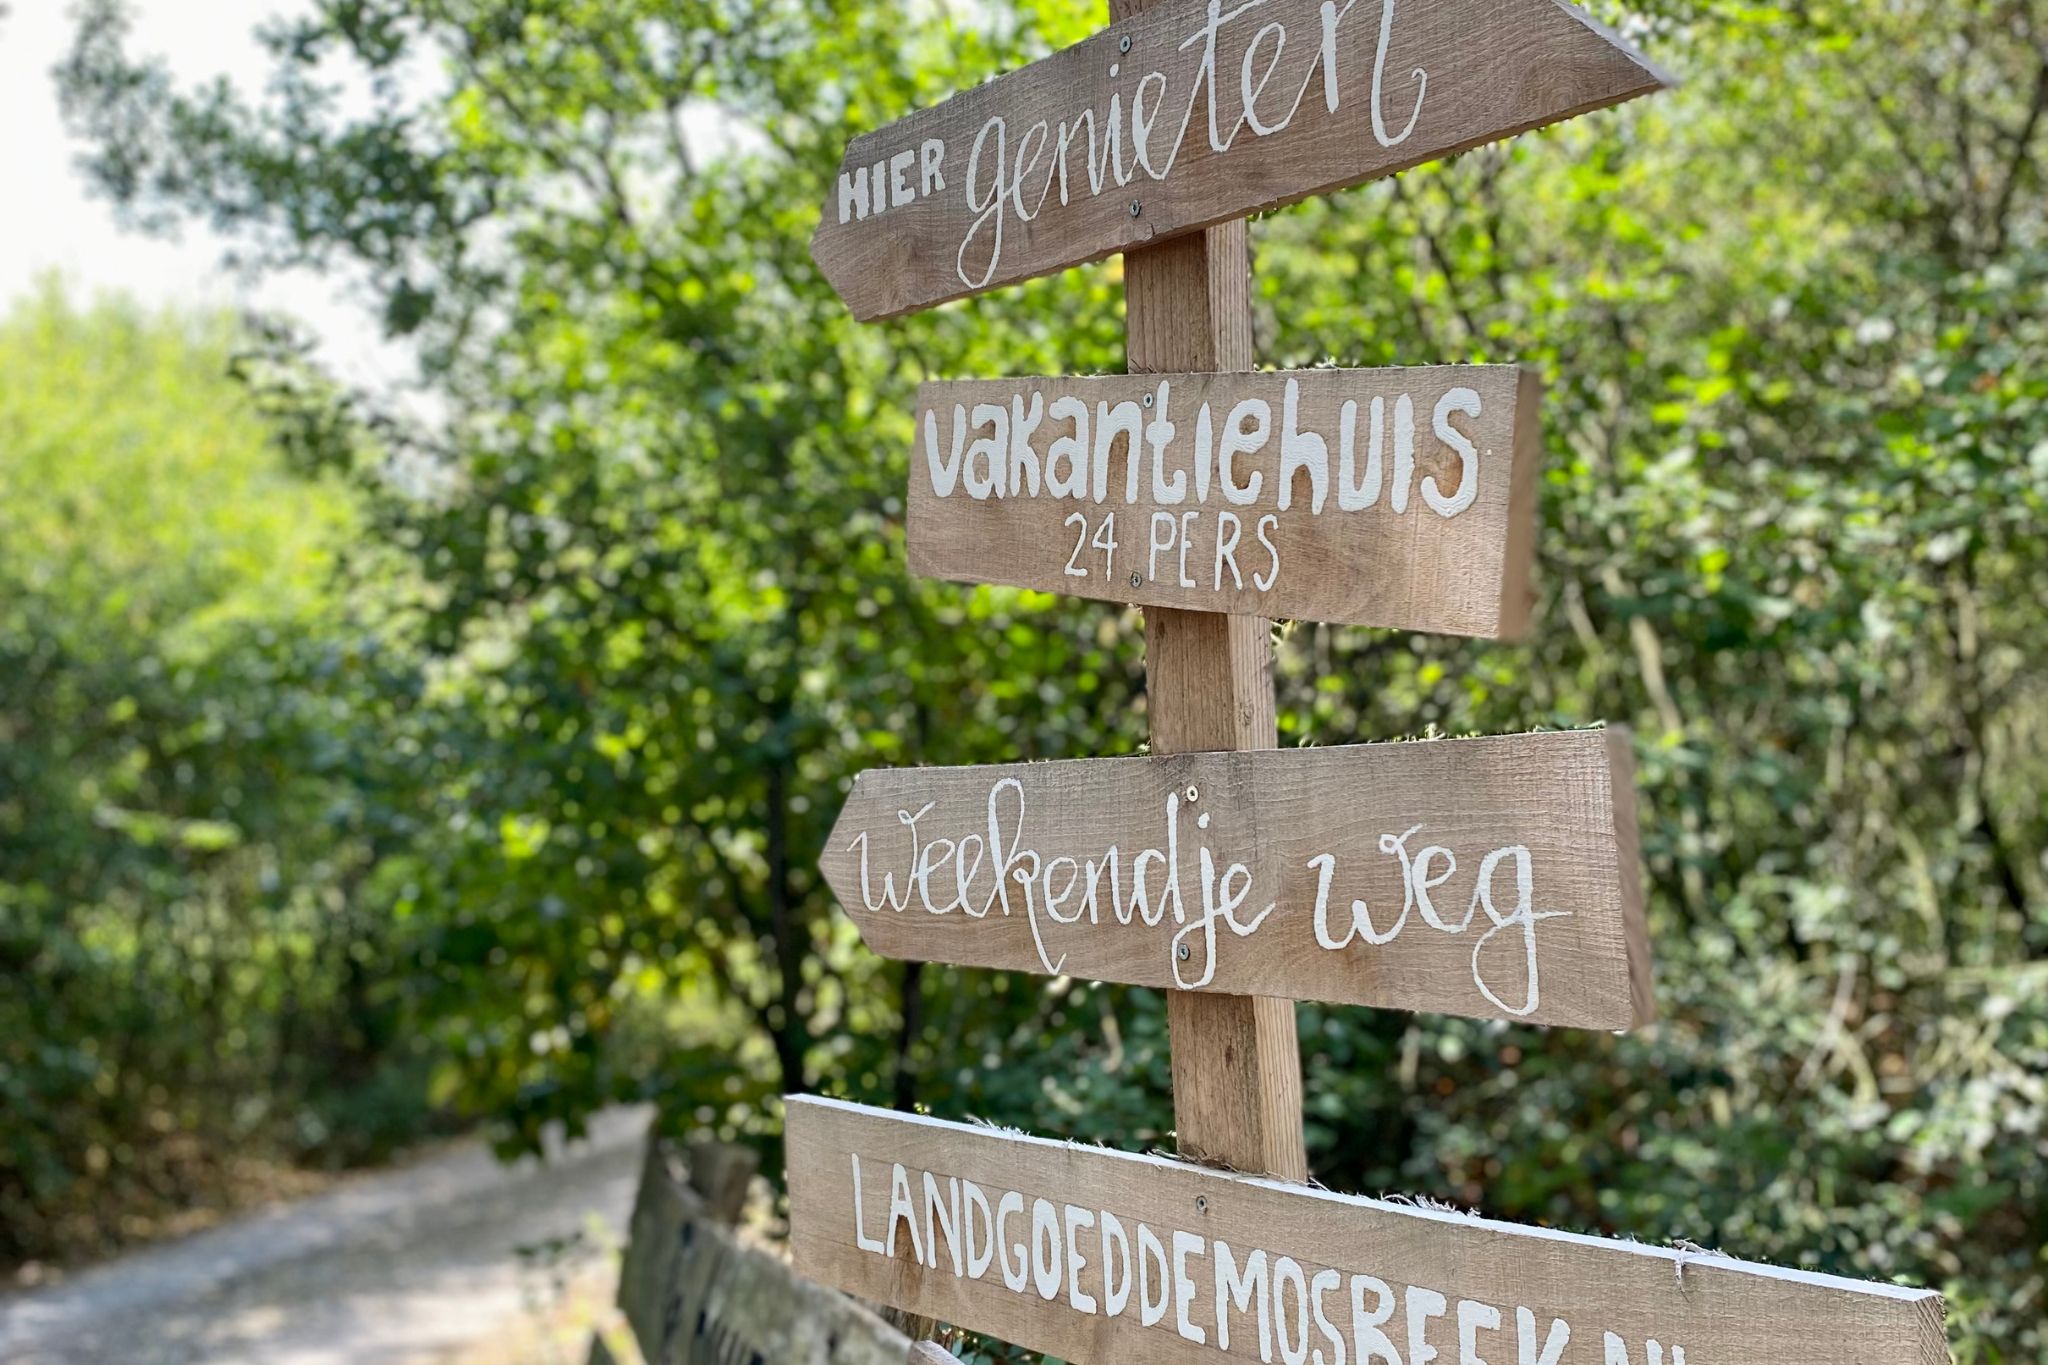 HIER genieten
vakantiehuis
24 PERS
Weekendje weg
LANDGOEDDEMOSBEEK.NL